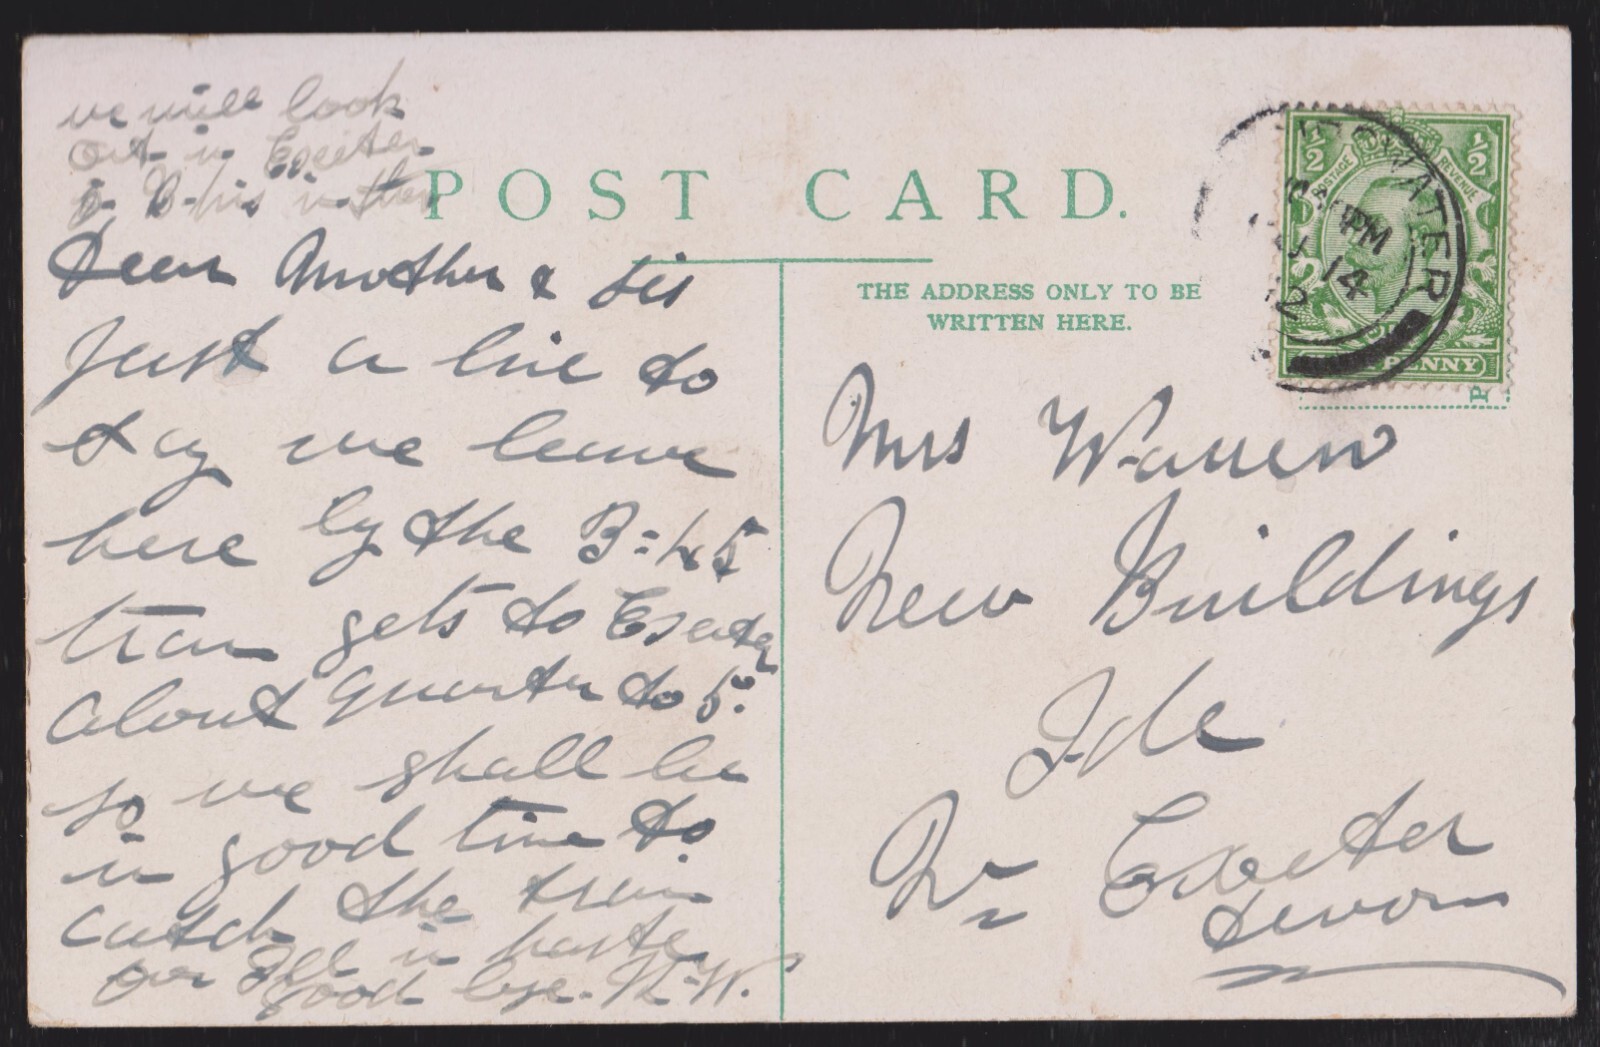 we will look
out in Exeter
Dear Mother & Sis
Just a line to
day we leave
here by the 3=45
train gets to Exeter
about quarter to 5.
so we shall be
in good time to
catch the train
for Ide in haste
good bye. W.
POST CARD.
THE ADDRESS ONLY TO BE
WRITTEN HERE.
Mrs Warren
New Buildings
Ide
Nr Exeter
Devon
½ ½
POSTAGE REVENUE
PENNY
WATER
PM
14
12
P